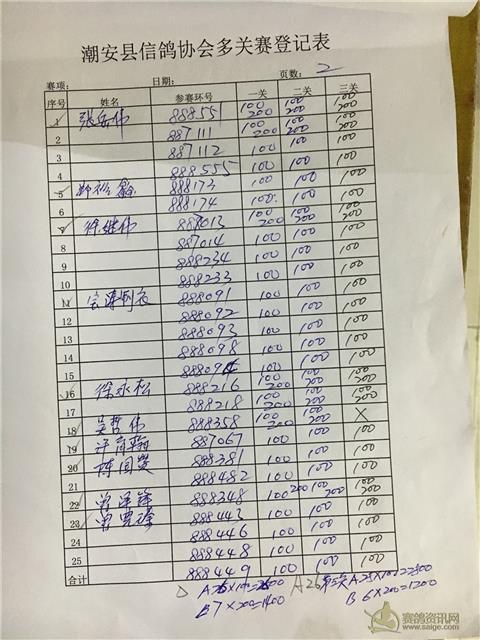 潮安县信鸽协会多关赛登记表
赛项: 日期: 页数: 2
序号 姓名 参赛环号 一关 二关 三关
1 张岳伟 888551 100 200 100 200 100 200
2 887111 100 200 100 200 100 200
3 887112 100 100 100
4 888555 100 100 100
5 888173 100 100 100
6 888174 100 100 100
7 徐继伟 887013 100 200 100 200 100 200
8 887014 100 100 100
9 888234 100 100 100
10 888233 100 100 100
11 888091 100 100 100
12 888092 100 100 100
13 888093 100 100 100
14 888098 100 100 100
15 888094 100 100 100
16 徐永松 888216 100 200 100 200 100 200
17 888218 100 200 100 200 100 200
18 吴哲伟 888358 100 200 100 200 X
19 许育翰 887067 100 100 100
20 陈国贤 888381 100 100 100
21 888482 100 100 100
22 曾泽锋 888348 100 200 100 200 100 200
23 888443 100 100 100
24 888446 100 100 100
25 888448 100 100 100
合计 888449 100 100 100
A26×100=2600 A26
B7×200=1400 B 6×200=1200
赛鸽资讯网
www.saige.com